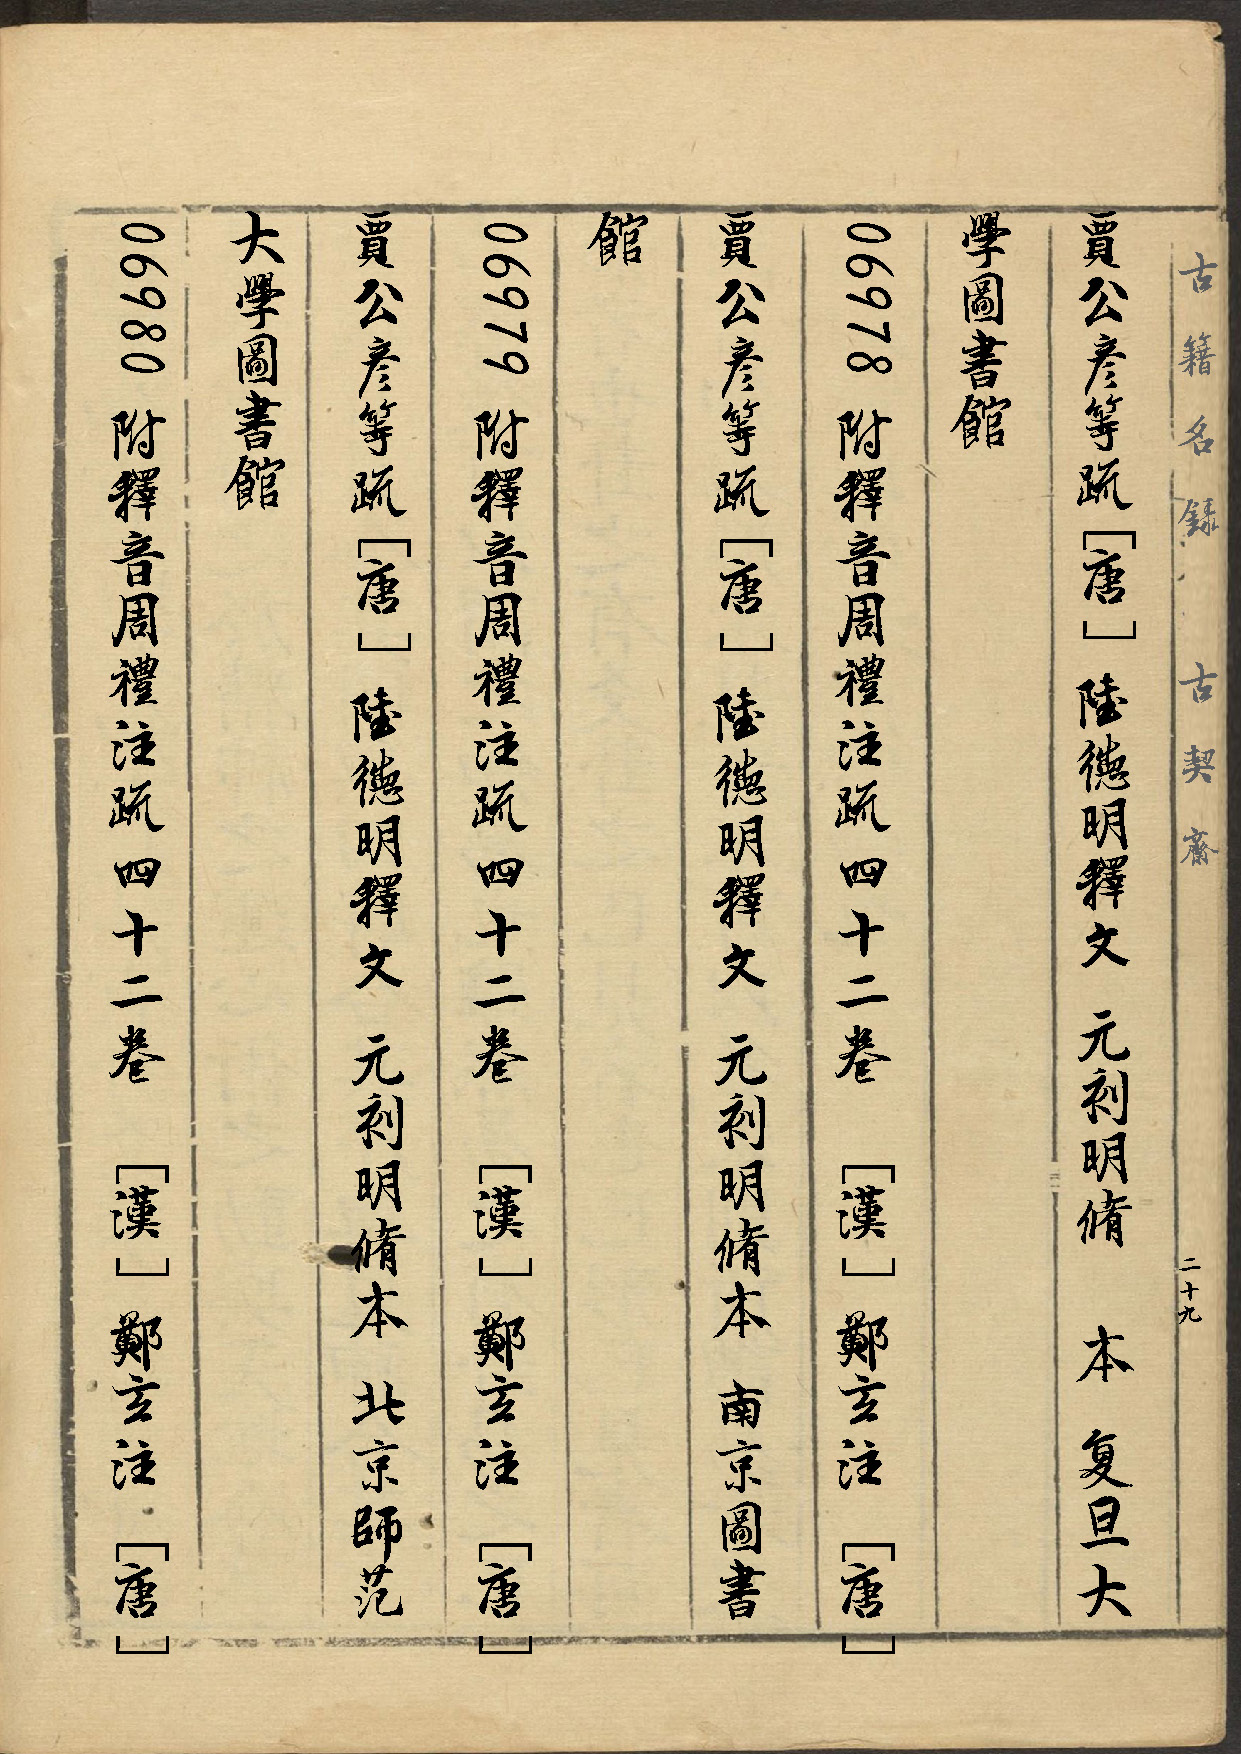 古籍名錄 古契齋 二十九
賈公彥等疏［唐］陸德明釋文 元刻明脩 本 复旦大
學圖書館
06978 附釋音周禮注疏四十二卷 ［漢］鄭玄注 ［唐］
賈公彥等疏［唐］陸德明釋文 元刻明脩本 南京圖書
館
06979 附釋音周禮注疏四十二卷 ［漢］鄭玄注 ［唐］
賈公彥等疏［唐］陸德明釋文 元刻明脩本 北京師范
大學圖書館
06980 附釋音周禮注疏四十二卷 ［漢］鄭玄注 ［唐］